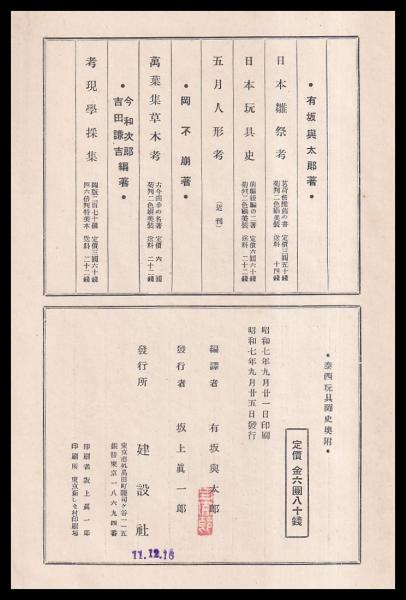 ● 有坂與太郎著 ●
日本雛祭考
菊判二色刷美裝 送料 十四錢
日本玩具史
前編後編の二著 定價六圓六十錢
菊判二色刷美裝 送料 二十二錢
五月人形考
(近刊)
● 岡不崩著 ●
萬葉集草木考
古今獨步の名著 定價 六圓
菊判二色刷美裝 送料 二十二錢
● 今和次郎
吉田謙吉 編著 ●
考現學採集
圖版二百七十個 定價三圓六十錢
四六倍判特美本 送料 二十二錢
● 泰西玩具圖史奧附 ●
定價 金六圓八十錢
昭和七年九月廿一日印刷
昭和七年九月廿五日發行
編譯者 有坂與太郎
發行者 坂上眞一郎
發行所 建設社
東京市外高田町雜司ケ谷一一五
振替東京一八六九四番
印刷者 坂上眞一郎
印刷所 東京新しき村印刷場
11.12.16